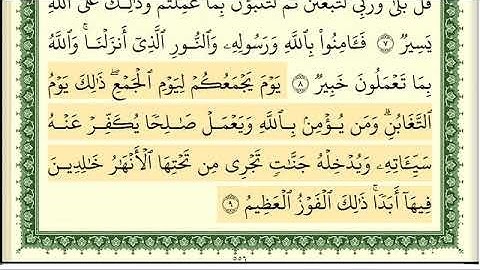 قُلْ بَلَىٰ وَرَبِّى لَتُبْعَثُنَّ ثُمَّ لَتُنَبَّؤُنَّ بِمَا عَمِلْتُمْ ۚ وَذَٰلِكَ عَلَى ٱللَّهِ
يَسِيرٌ ٧ فَـَٔامِنُوا۟ بِٱللَّهِ وَرَسُولِهِۦ وَٱلنُّورِ ٱلَّذِىٓ أَنزَلْنَا ۚ وَٱللَّهُ
بِمَا تَعْمَلُونَ خَبِيرٌ ٨ يَوْمَ يَجْمَعُكُمْ لِيَوْمِ ٱلْجَمْعِ ۖ ذَٰلِكَ يَوْمُ
ٱلتَّغَابُنِ ۗ وَمَن يُؤْمِنۢ بِٱللَّهِ وَيَعْمَلْ صَـٰلِحًا يُكَفِّرْ عَنْهُ
سَيِّـَٔاتِهِۦ وَيُدْخِلْهُ جَنَّـٰتٍ تَجْرِى مِن تَحْتِهَا ٱلْأَنْهَـٰرُ خَـٰلِدِينَ
فِيهَآ أَبَدًا ۚ ذَٰلِكَ ٱلْفَوْزُ ٱلْعَظِيمُ ٩
٥٥٦